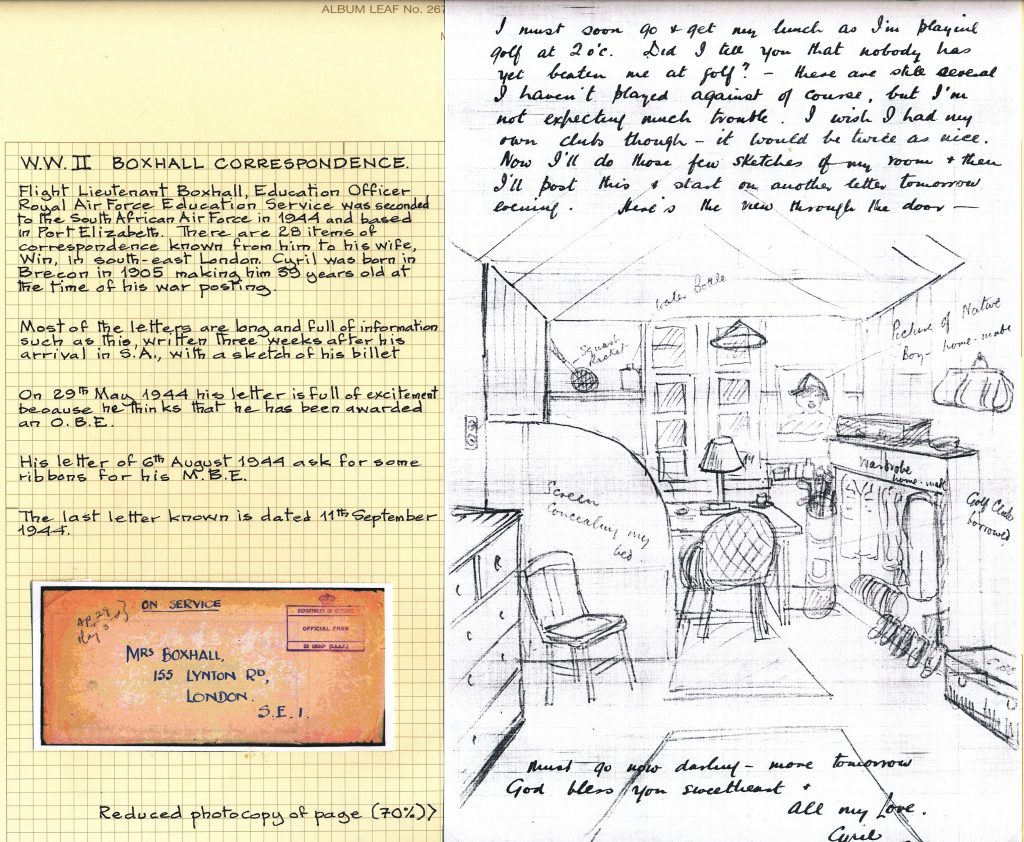 ALBUM LEAF No. 267
W.W. II BOXHALL CORRESPONDENCE.
Flight Lieutenant Boxhall, Education Officer
Royal Air Force Education Service was seconded
to the South African Air Force in 1944 and based
in Port Elizabeth. There are 28 items of
correspondence known from him to his wife,
Win, in south-east London. Cyril was born in
Brecon in 1905 making him 39 years old at
the time of his war posting.
Most of the letters are long and full of information
such as this, written three weeks after his
arrival in S.A., with a sketch of his billet
On 29th May 1944 his letter is full of excitement
because he thinks that he has been awarded
an O.B.E.
His letter of 6th August 1944 ask for some
ribbons for his M.B.E.
The last letter known is dated 11th September
1944.
ON SERVICE
OFFICIAL FREE
MRS BOXHALL,
155 LYNTON RD,
LONDON.
S.E.1.
Reduced photocopy of page (70%)>
I must soon go & get my lunch as I'm playing
golf at 2 o'c. Did I tell you that nobody has
yet beaten me at golf? - there are still several
I haven't played against of course, but I'm
not expecting much trouble. I wish I had my
own clubs though - it would be twice as nice.
Now I'll do those few sketches of my room & then
I'll post this & start on another letter tomorrow
evening. Here's the view through the door —
Water Bottle
Squash
Racket
Picture of Native
Boy - home-made
Wardrobe
home-made
Screen
concealing my
bed
Golf Clubs
borrowed
Must go now darling - more tomorrow
God bless you sweetheart &
All my Love.
Cyril